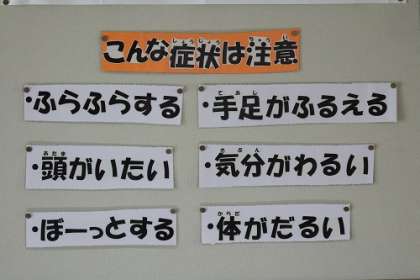 こんな症状は注意
・ふらふらする
・手足がふるえる
・頭がいたい
・気分がわるい
・ぼーっとする
・体がだるい